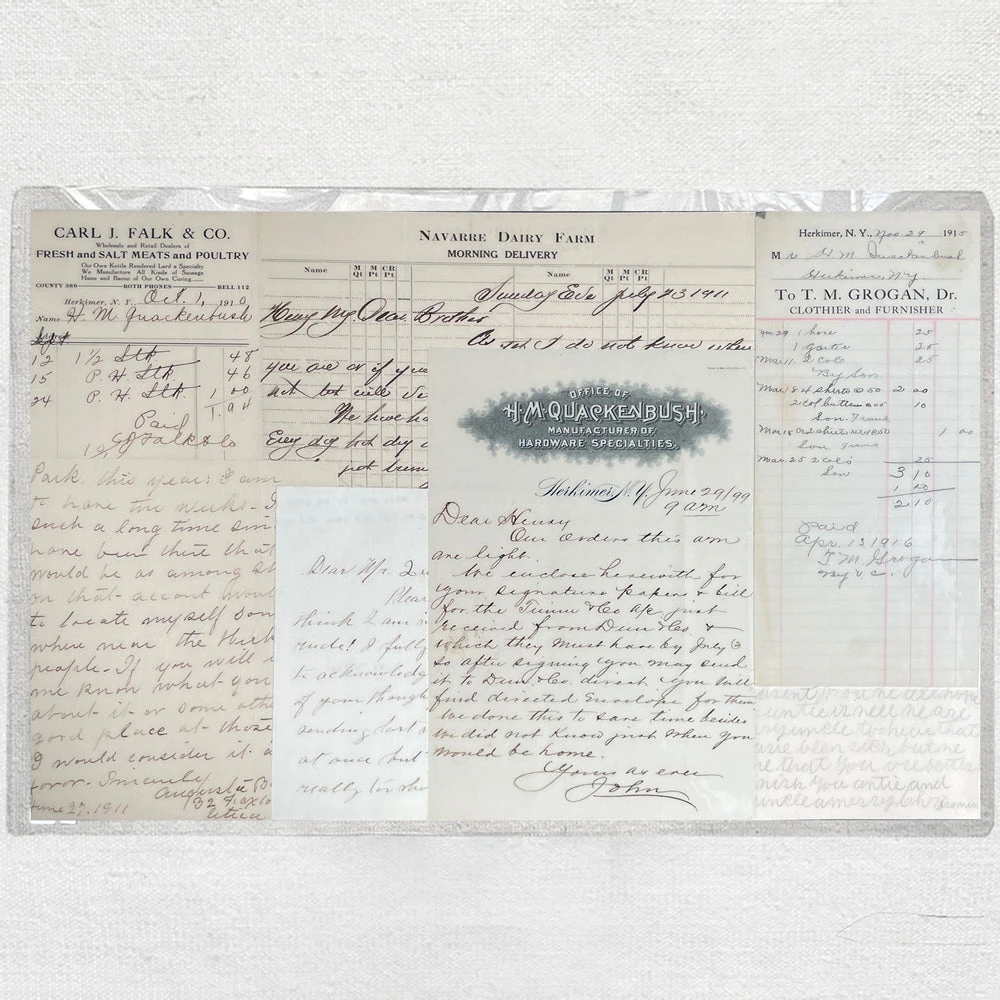 CARL J. FALK & CO.
Wholesale and Retail Dealers of
FRESH and SALT MEATS and POULTRY
Our Own Kettle Rendered Lard a Specialty
We Manufacture All Kinds of Sausage
Hams and Bacon of Our Own Curing
COUNTY 386 BOTH PHONES BELL 112
Herkimer, N. Y. Oct. 1, 1910
Name H. M. Quackenbush
12 1 1/2 Stk 48
15 P. H. Stk 46
24 P. H. Stk 1 00
1.94
Paid
CJ Falk & Co
Park, this year. I am
to have two weeks - I
such a long time sin
have been there that
would be as among st
on that account woul
to locate myself som
where near the Herk
people - If you will
me know what you
about it or some othe
good place at those
I would consider it a
favor. Sincerely
Augusta B
32
Utica
June 27. 1911
NAVARRE DAIRY FARM
MORNING DELIVERY
Name M Qt M Pt CR Pt Name M Qt M Pt CR Pt
Sunday Eve July 23 1911
My Dear Brother
As I do not know when
you are or if you
not but will
We have ha
Every day hot dry
just
Dear Mr. Qu
Pleas
think I am
rude! I fully
to acknowledg
of your though
sending last
at once but
really too sho
OFFICE OF
H. M. QUACKENBUSH,
MANUFACTURER OF
HARDWARE SPECIALTIES.
Herkimer, N.Y. June 29/99
9 am
Dear Henry
Our orders this am
are light.
We enclose herewith for
your signature papers & bill
for the & Co Ap just
received from Dun & Co &
which they must have by July 3
so after signing you may send
it to Dun & Co. direct you will
find directed Envelope for them
We done this to save time besides
we did not know just when you
would be home.
Yours as ever
John
Herkimer, N. Y., Nov 29 1915
M r H. M. Quackenbush
Herkimer N.Y.
To T. M. GROGAN, Dr.
CLOTHIER and FURNISHER
Nov 29 1 hose 25
1 garter 25
Mar 11. 2 Cols 25
By Son
Mar 18 4 shirts @ 50 2 00
2 col buttons 10
Son Frank
Mar 18 2 shirts 1 00
Son
Mar. 25 2 Cols 25
Son 3 10
1 00
2.10
Paid
Apr. 13 1916
T M Grogan
untie is well we are
my uncle to hear that
have been sick but we
are that you are better
wish you untie and
uncle a merry